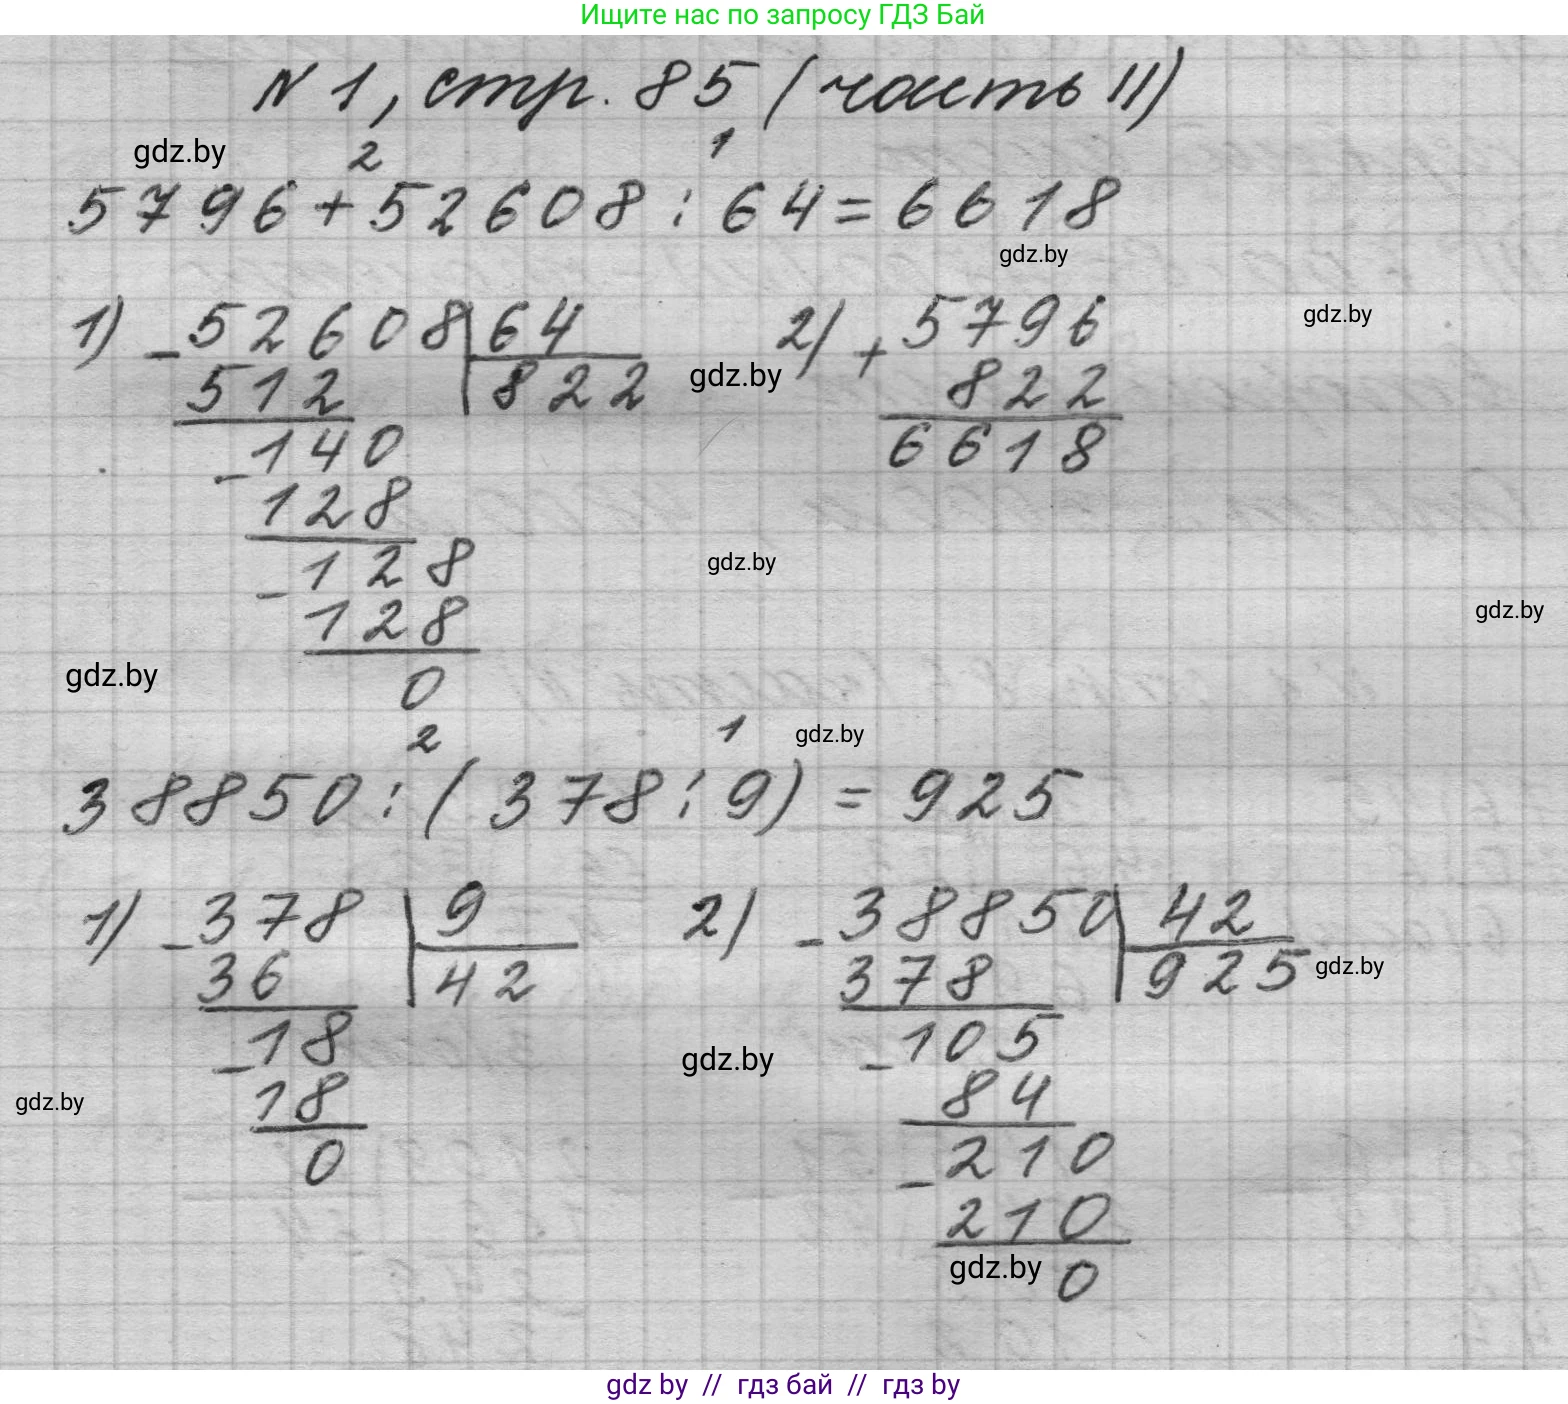 Ищите нас по запросу ГДЗ Бай
N 1, стр. 85 (часть II)
gdz.by
2 1
5796+52608:64=6618
gdz.by
1) -52608 64 2) +5796
gdz.by
512 822 gdz.by 822
-140 6618
128
-128 gdz.by
128 gdz.by
gdz.by
0
2 1 gdz.by
38850:(378:9)=925
1) -378 9 2) -38850 42
36 42 378 925 gdz.by
-18 gdz.by -105
gdz.by 18 84
0 -210
210
gdz.by 0
gdz by // гдз бай // гдз by